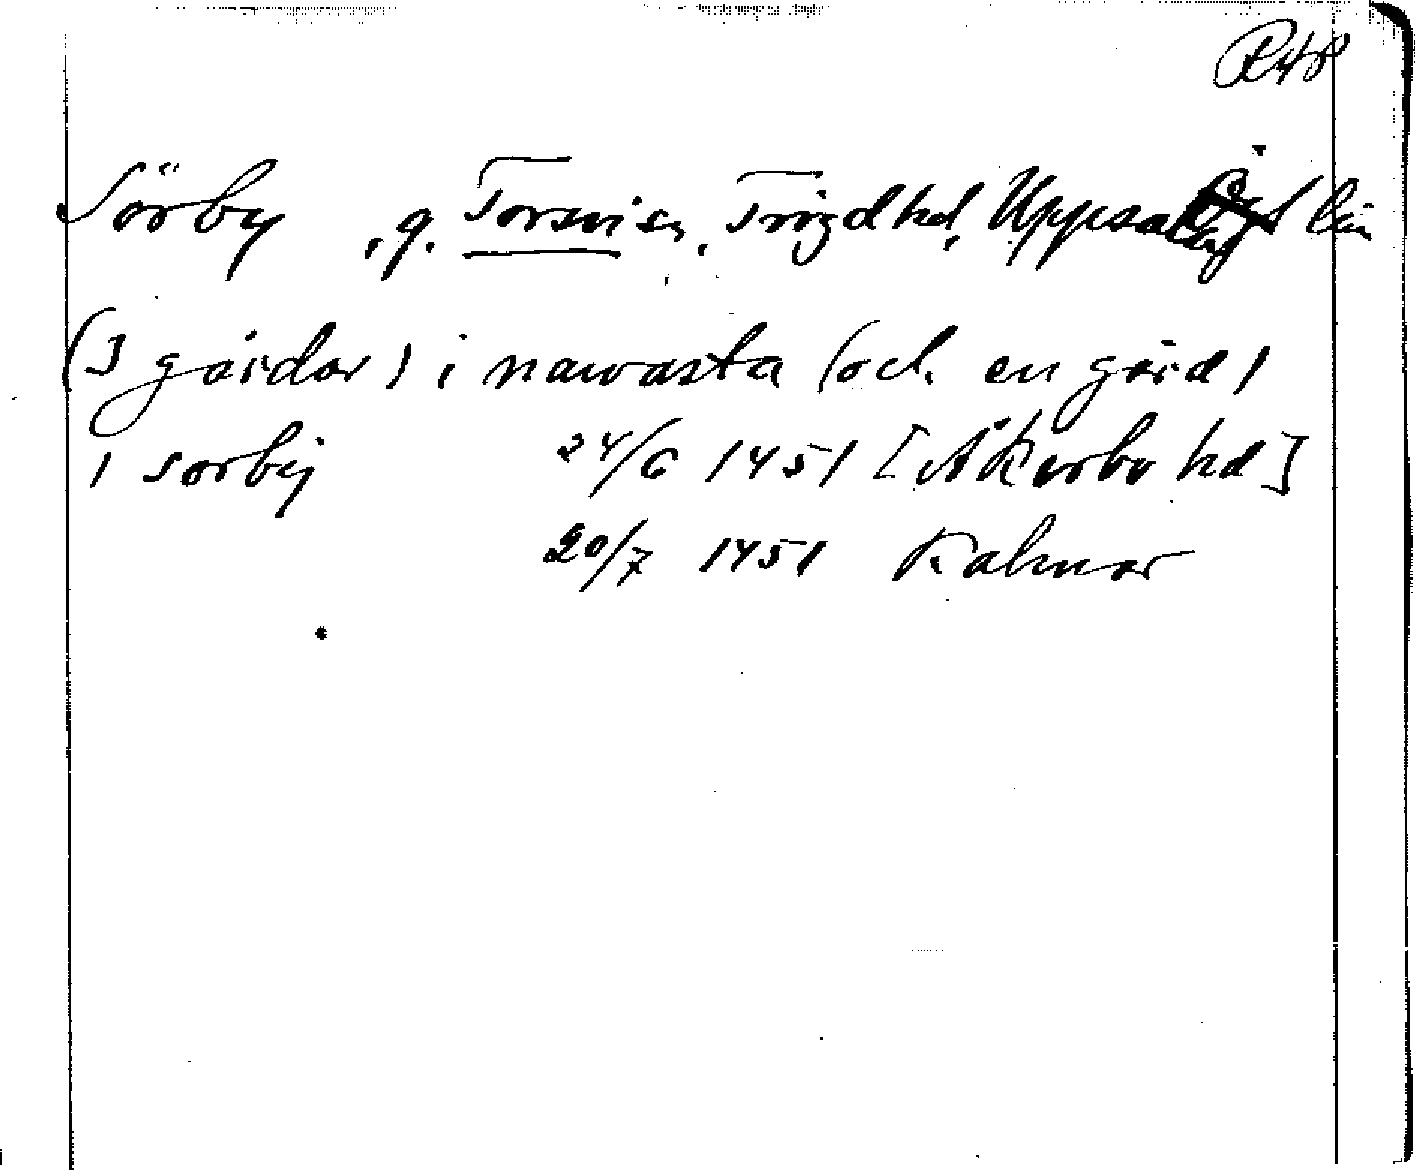 R48
Sörby , g. Torsviss, Trögd hd, Uppsala län
(3 gårdar) i nawasta (och en gård)
i sorby 24/6 1451 [Åkerbo hd]
20/7 1451 Kalmar